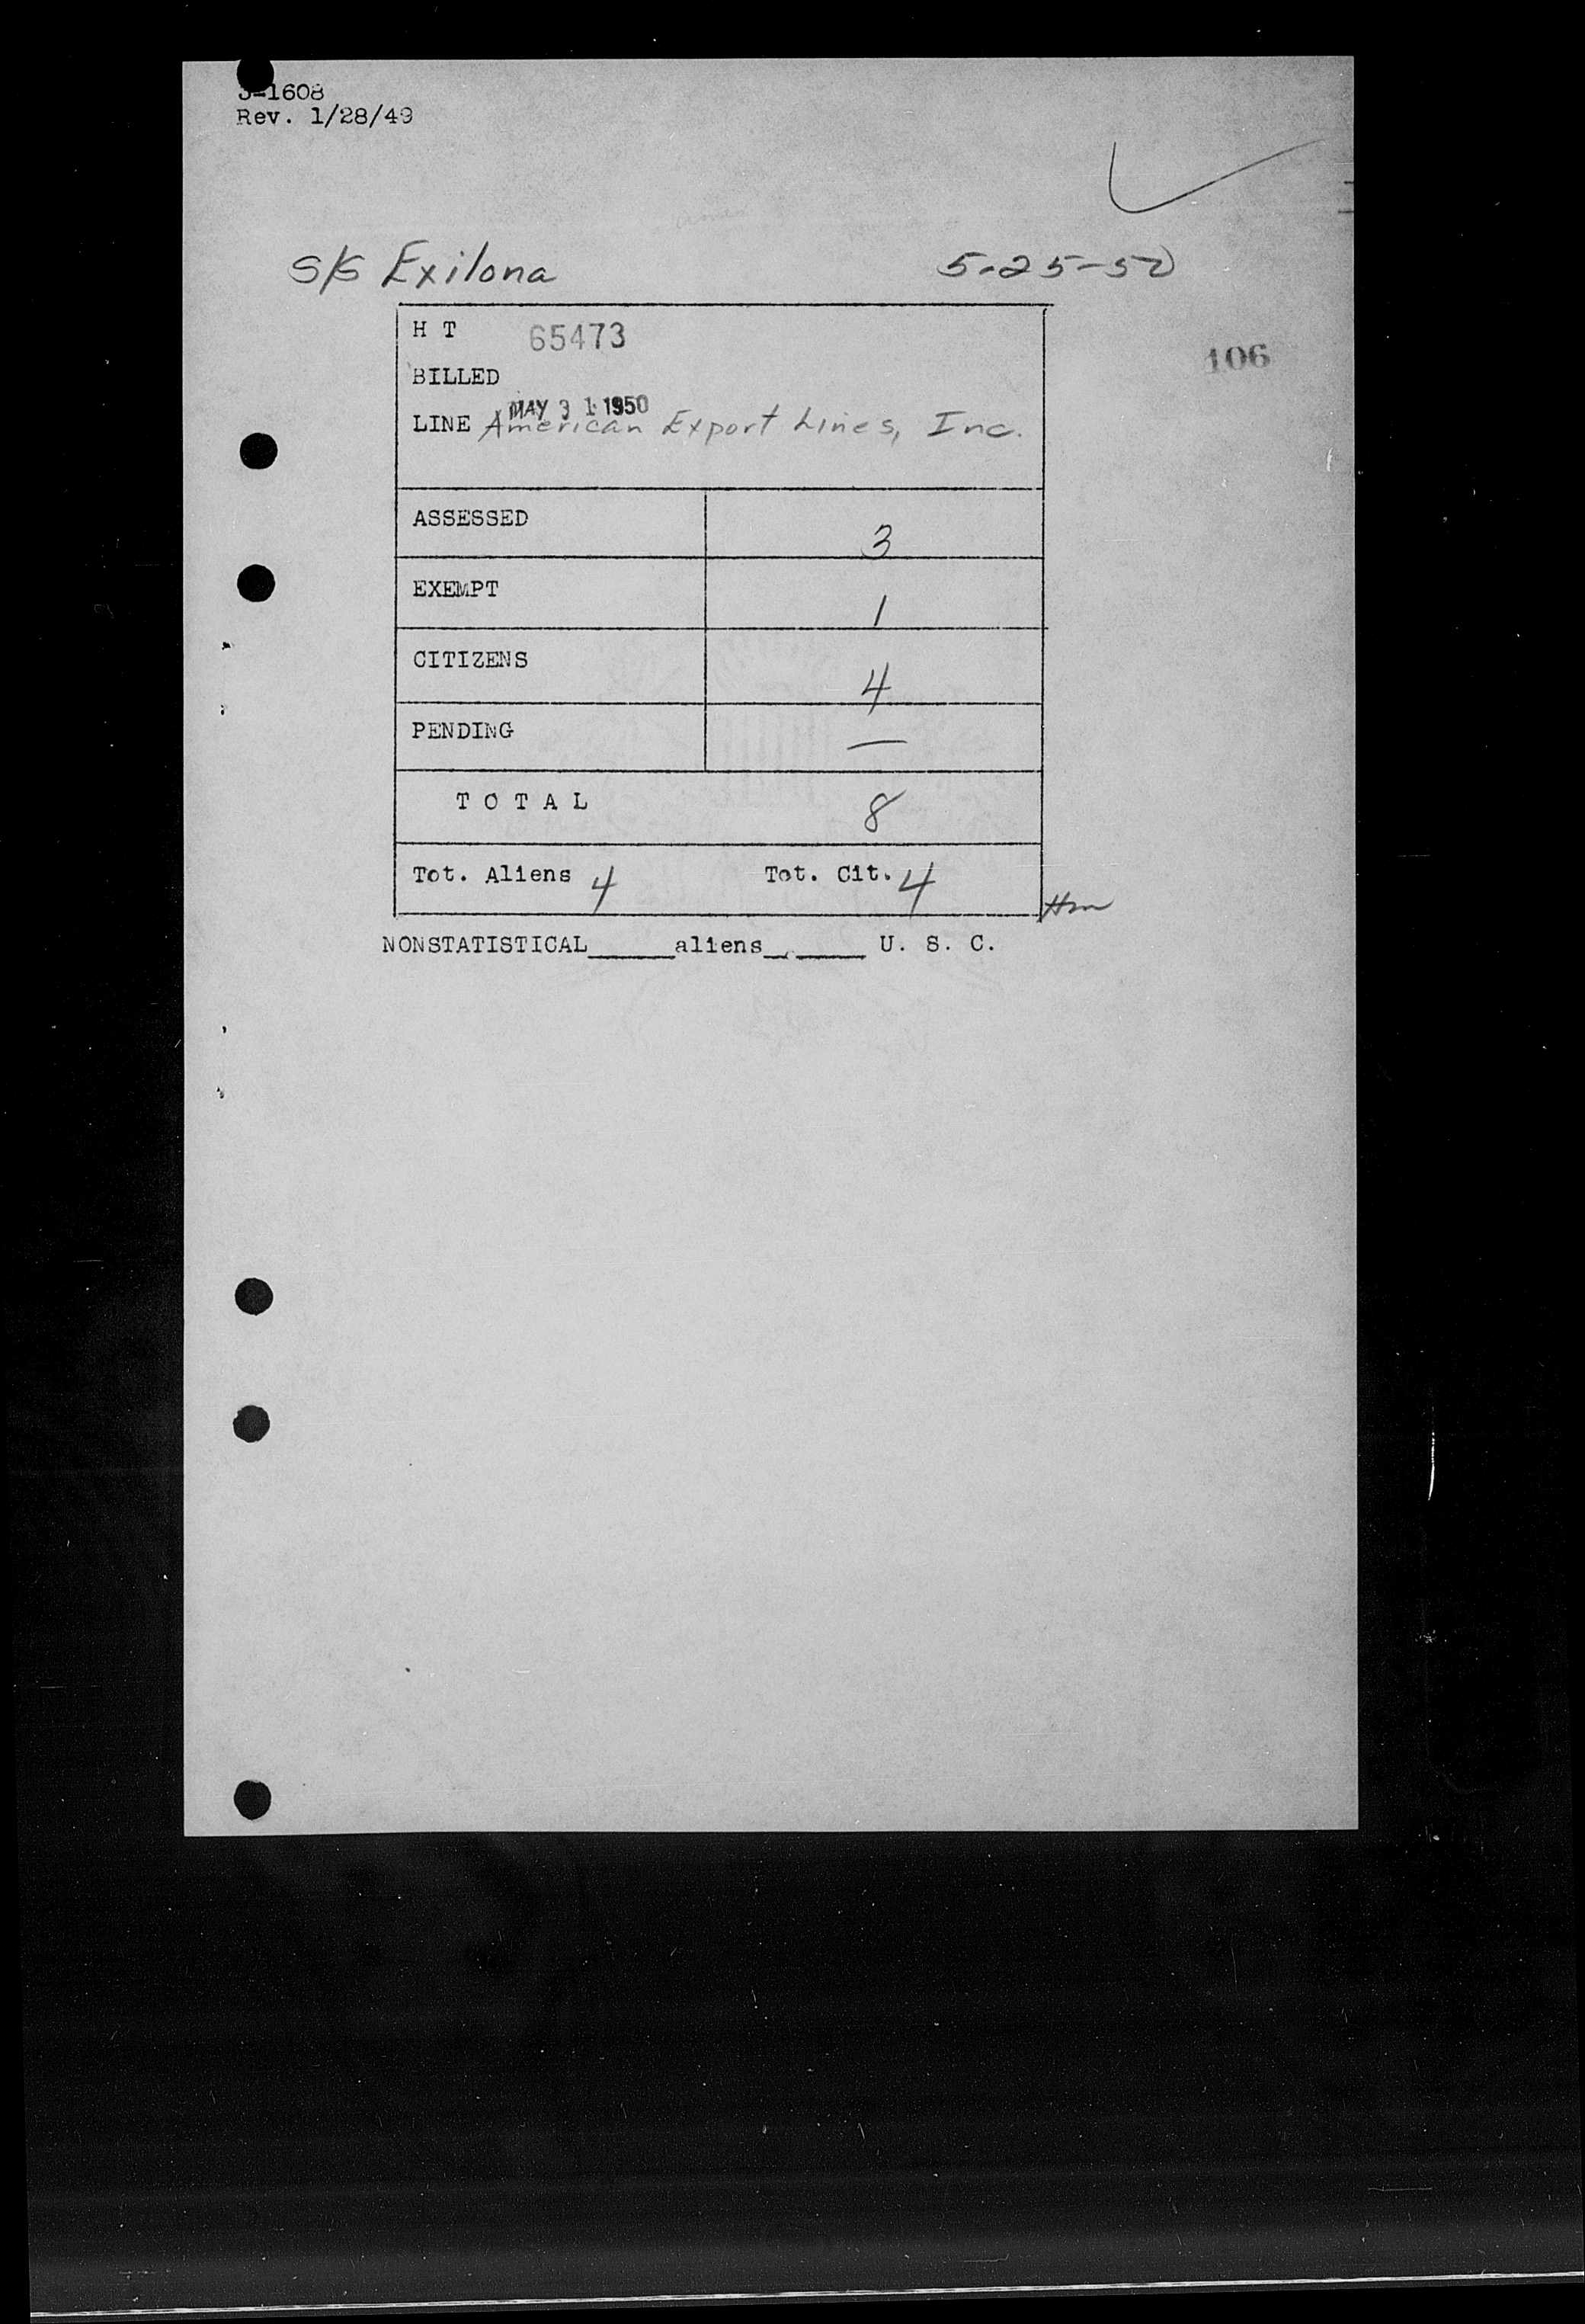 3-1608
Rev. 1/28/49
S/S Exilona 5-25-50
H T 65473
106
BILLED
MAY 31 1950
LINE American Export Lines, Inc.
ASSESSED 3
EXEMPT 1
CITIZENS 4
PENDING —
TOTAL 8
Tot. Aliens 4 Tot. Cit. 4
NONSTATISTICAL______aliens__ _____ U. S. C.